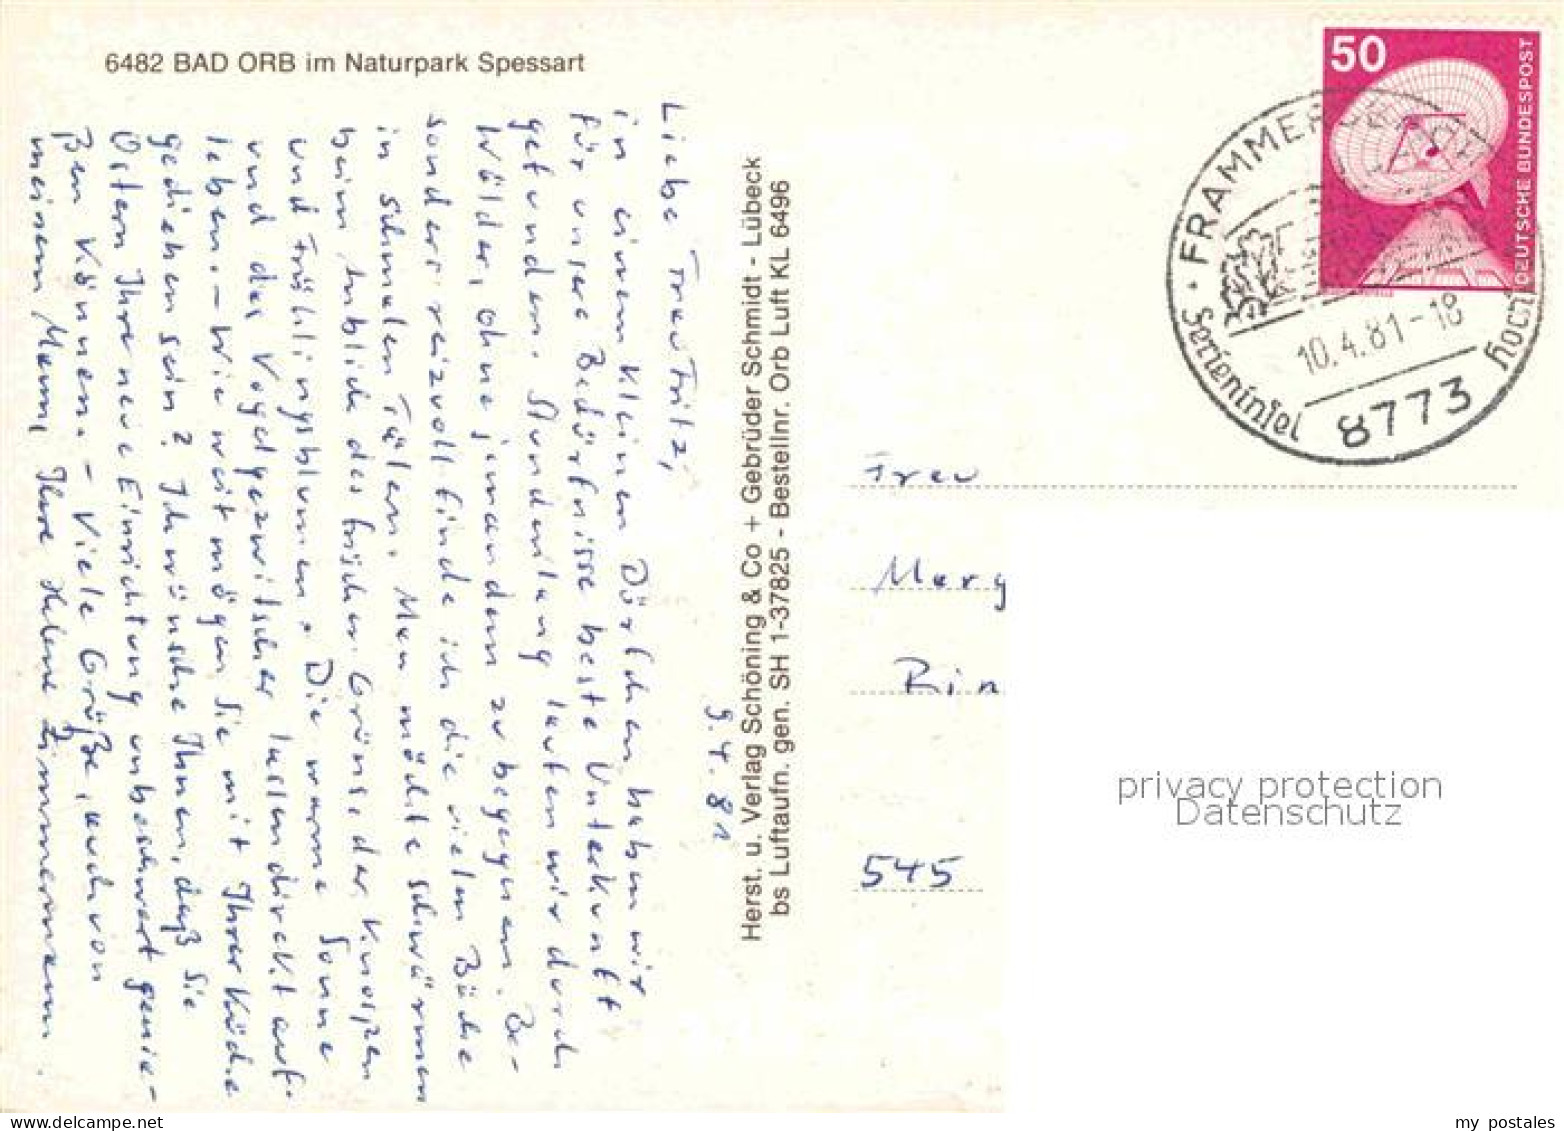 6482 BAD ORB im Naturpark Spessart
9.4.81
Liebe Frau Fritz,
in einem kleinen Dörfchen haben wir
für unsere Bedürfnisse beste Unterkunft
gefunden. Stundenlang laufen wir durch
Wälder, ohne jemandem zu begegnen. Be-
sonders reizvoll finde ich die vielen Bäche
in schmalen Tälern. Man möchte schwärmen
beim Anblick des frischen Grüns, der Knospen
und Frühlingsblumen. Die warme Sonne
und das Vogelgezwitscher lassen direkt auf-
leben. – Wie weit mögen Sie mit Ihrer Küche
gediehen sein? Ich wünsche Ihnen, daß Sie
Ostern Ihre neue Einrichtung unbeschwert genie-
ßen können. – Viele Grüße, auch von
meinem Mann, Ihre Helene Zimmermann.
Herst. u. Verlag Schöning & Co + Gebrüder Schmidt - Lübeck
bs Luftaufn. gen. SH 1-37825 - Bestellnr. Orb Luft KL 6496
50
DEUTSCHE BUNDESPOST
FRAMMERSBACH
10.4.81-18
8773
Ferieninsel
Frau
Marg
Rin
545
privacy protection
Datenschutz
my postales